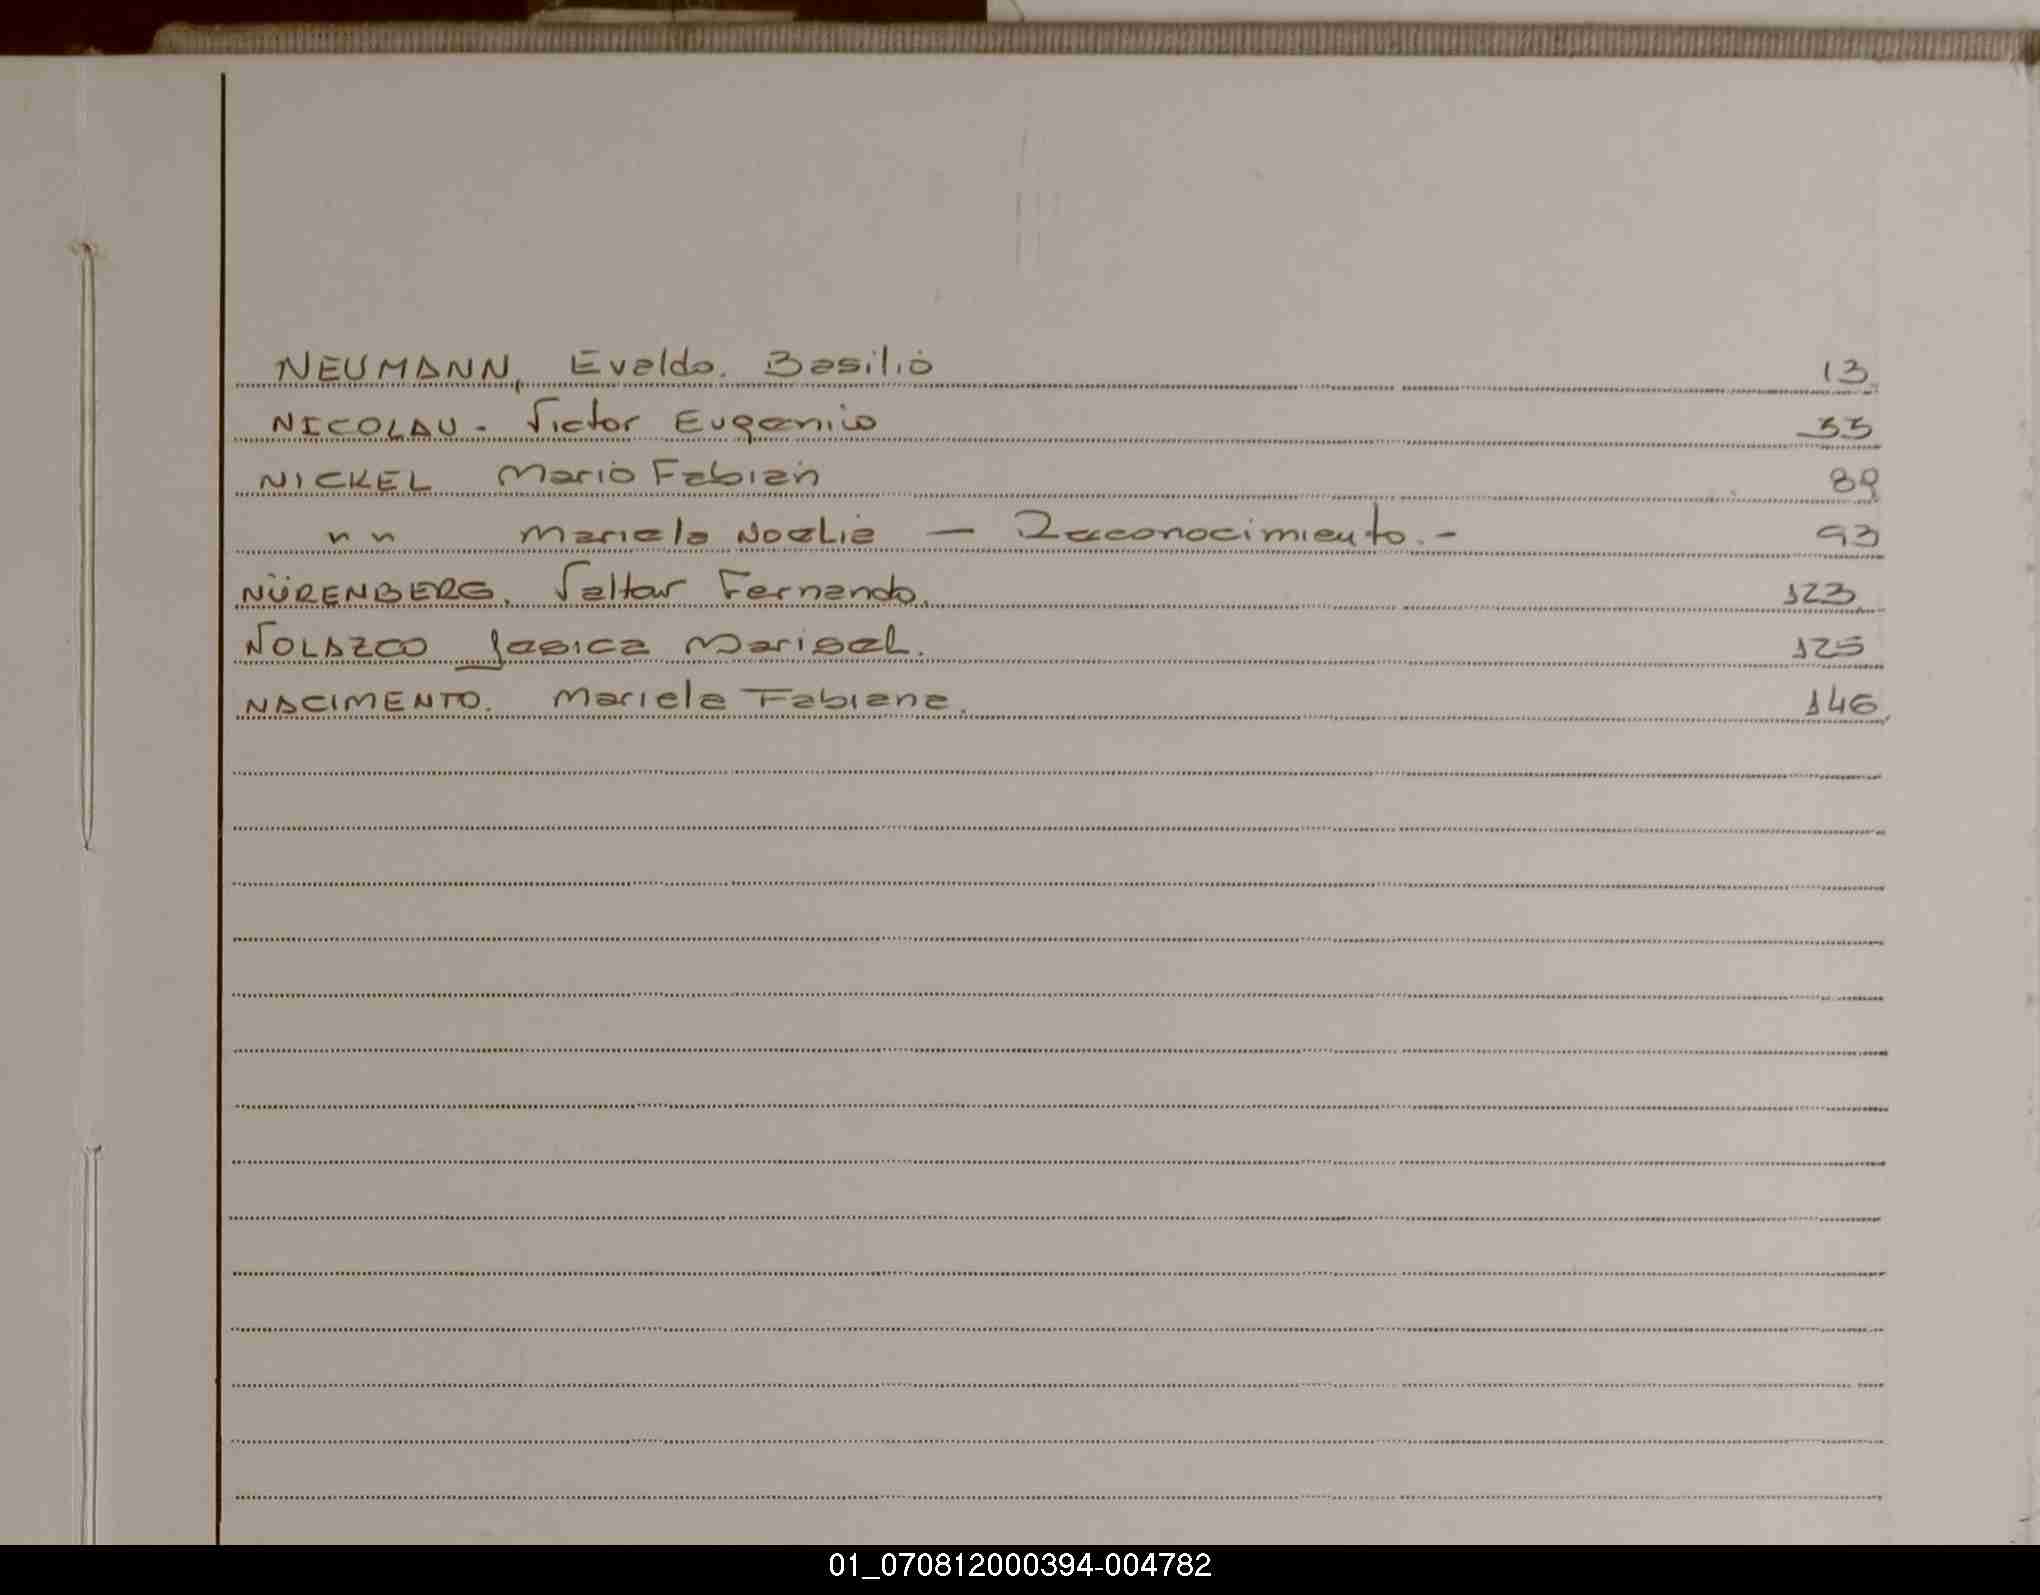 NEUMANN, Evaldo. Basilio 13
NICOLAU - Victor Eugenio 33
NICKEL Mario Fabian 89
" " Mariela Noelia — Reconocimiento.- 93
NÜRENBERG. Valter Fernando. 123
NOLAZCO Jesica Marisel. 125
NACIMENTO. Mariela Fabiana. 146
01_070812000394-004782